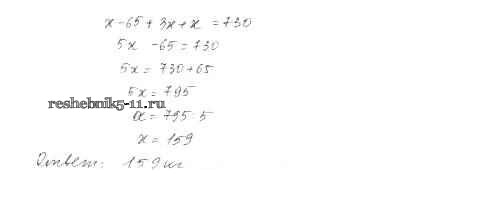 x-65+3x+x=730
5x-65=730
5x=730+65
5x=795
reshebnik5-11.ru
x=795:5
x=159
Ответ: 159 кг